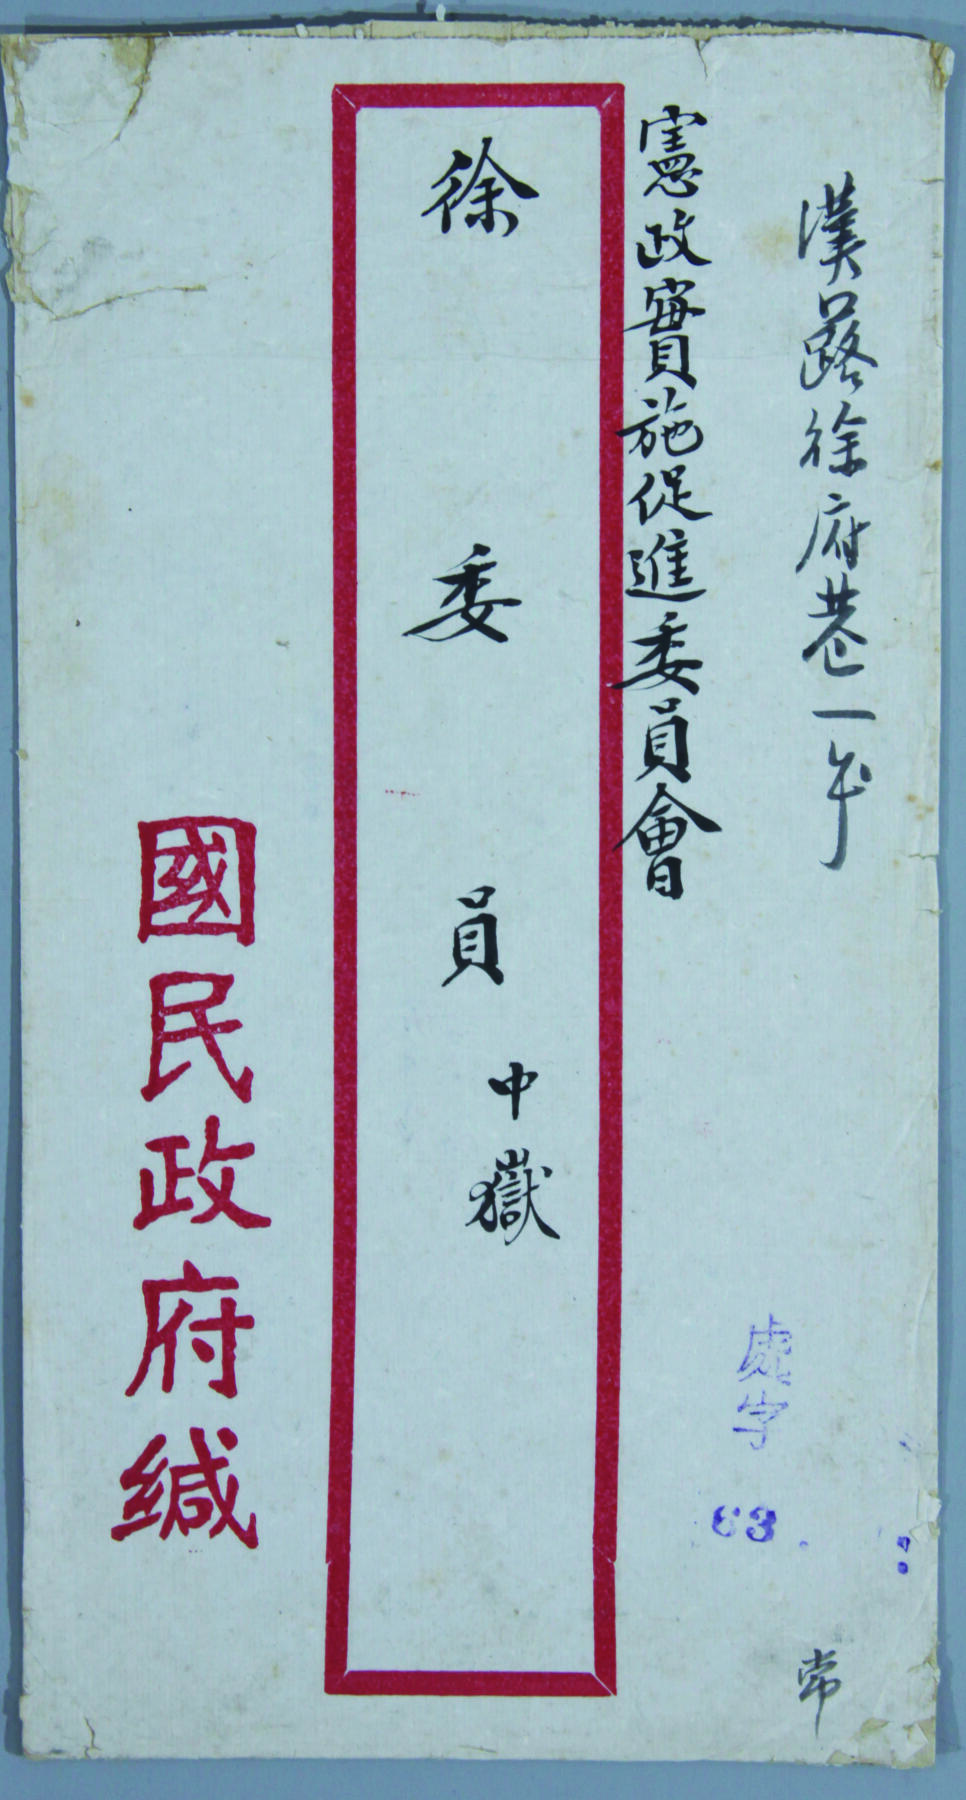 漢口路徐府巷一号
憲政實施促進委員會
徐委員中嶽
國民政府缄
處字
63
常